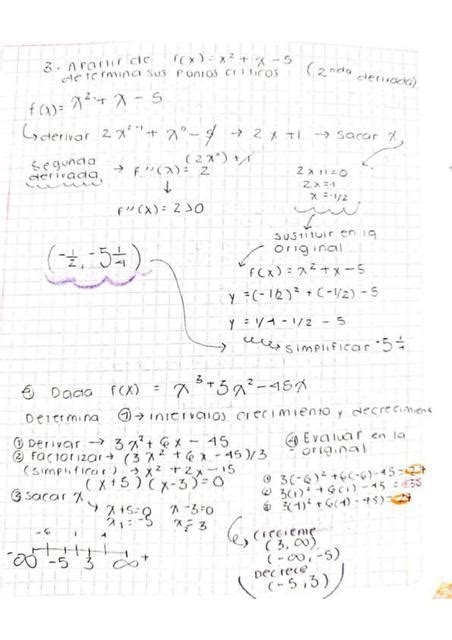 3. Apartir de f(x) = x² + x - 5
determina sus puntos críticos (2nda derivada)
f(x) = x² + x - 5
derivar 2x²⁻¹ + x⁰ - 5 → 2x + 1 → sacar x
Segunda derivada → f''(x) = 2
(2x⁰) + 1
f''(x) = 2 > 0
2x + 1 = 0
2x = -1
x = -1/2
sustituir en la
original
f(x) = x² + x - 5
y = (-1/2)² + (-1/2) - 5
y = 1/4 - 1/2 - 5
simplificar -5 1/4
(-1/2, -5 1/4)
Dada f(x) = x³ + 3x² - 45x
Determina → intervalos crecimiento y decrecimien
① Derivar → 3x² + 6x - 45
② Factorizar → (3x² + 6x - 45)/3
(simplificar) → x² + 2x - 15
(x + 5)(x - 3) = 0
③ sacar x
x + 5 = 0 x - 3 = 0
x₁ = -5 x₂ = 3
-6 1 4
-∞ -5 3 ∞ +
④ Evaluar en la
original
① 3(-6)² + 6(-6) - 45 = 27
② 3(1)² + 6(1) - 45 = -36
③ 3(4)² + 6(4) - 45) = 27
Creciente
(3, ∞)
(-∞, -5)
Decrece
(-5, 3)